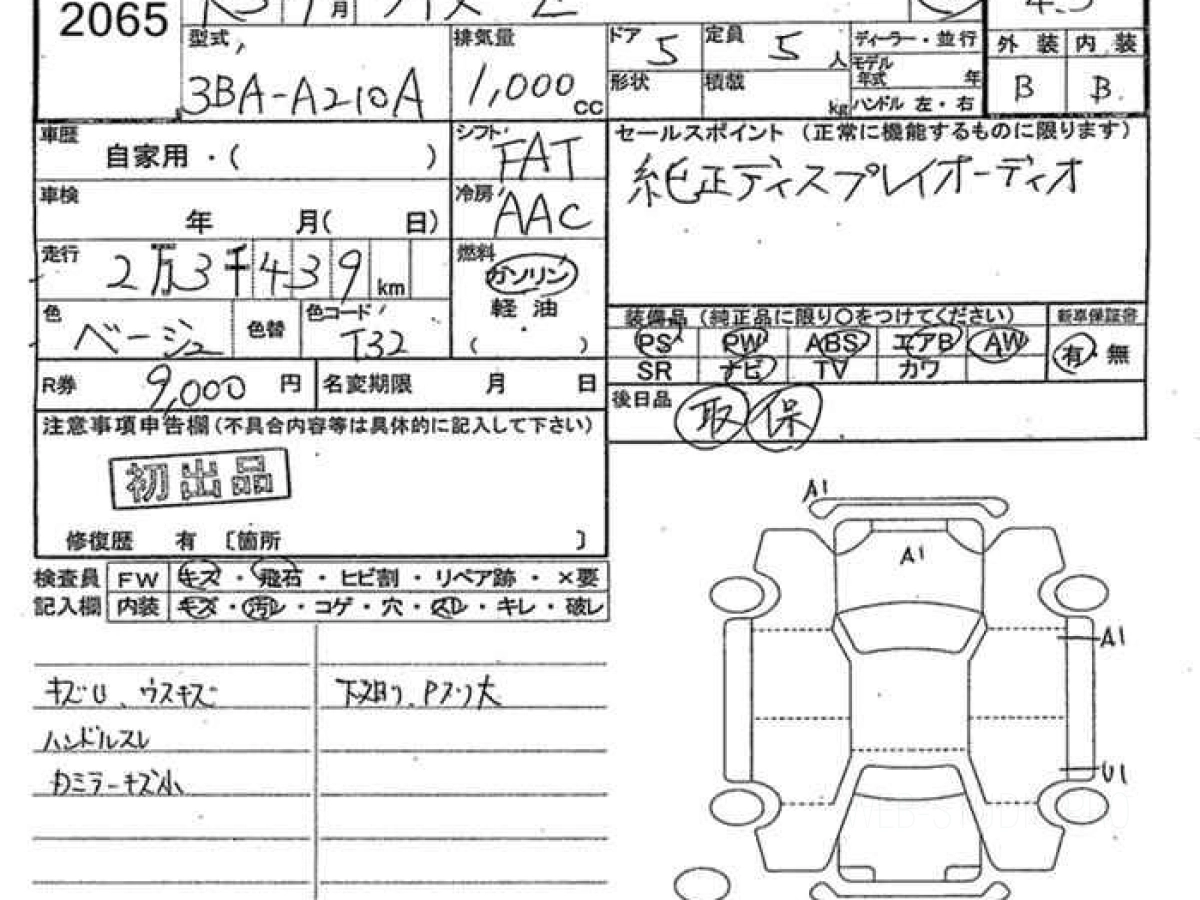 2065
月
型式
3BA-A210A
排気量
1,000 cc
ドア 5
定員 5 人
形状
積載 kg
ディーラー・並行
モデル年式 年
ハンドル 左・右
外装 内装
B B
車歴
自家用・( )
シフト FAT
車検
年 月( 日)
冷房 AAC
走行
2万3千439 km
燃料
ガソリン
軽油
( ・ )
色
ベージュ
色替
色コード
T32
R券 9,000 円
名変期限 月 日
セールスポイント(正常に機能するものに限ります)
純正ディスプレイオーディオ
装備品(純正品に限り〇をつけてください)
新車保証書
PS PW ABS エアB AW
SR ナビ TV カワ
有・無
後日品 取 保
注意事項申告欄(不具合内容等は具体的に記入して下さい)
初出品
修復歴 有 〔箇所 〕
検査員 FW キズ・飛石・ヒビ割・リペア跡・×要
記入欄 内装 キズ・汚レ・コゲ・穴・スレ・キレ・破レ
キズU、ウスキズ
ハンドルスレ
ミラーキズ小
下廻り、Pスリ大
A1
A1
A1
U1